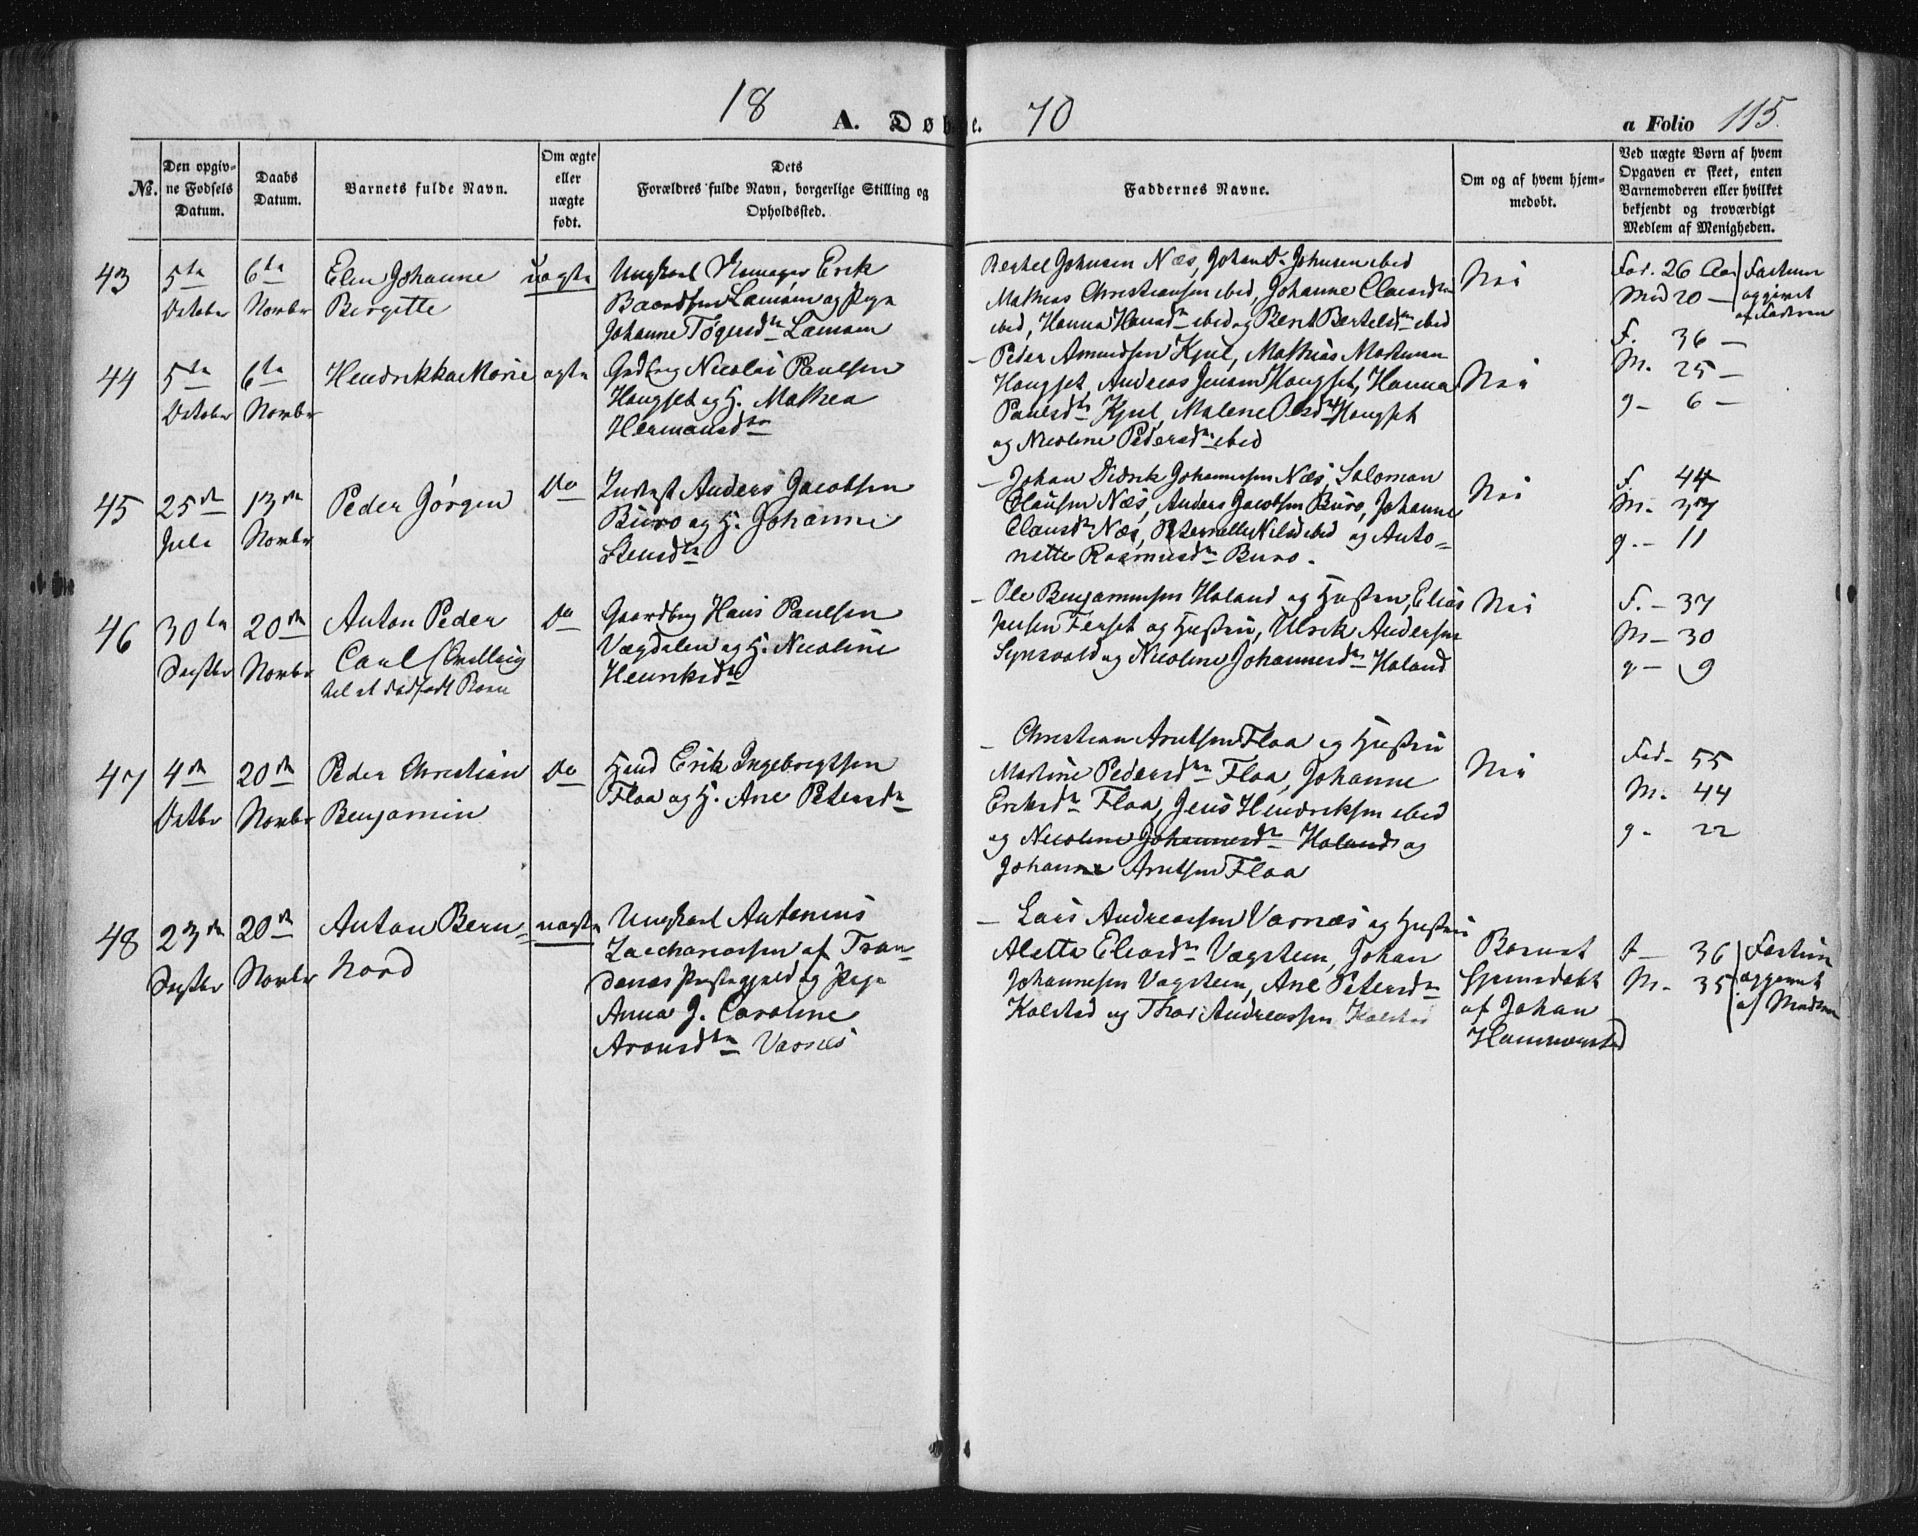 18 A. Døbte. 70 a Folio 115.
No.
Den opgiv-
ne Fødsels
Datum.
Daabs
Datum.
Barnets fulde Navn.
Om ægte
eller
uægte
født.
Dets
Forældres fulde Navn, borgerlige Stilling og
Opholdssted.
Faddernes Navne.
Om og af hvem hjem-
medøbt.
Ved uægte Børn af hvem
Opgaven er skeet, enten
Barnemoderen eller hvilket
bekjendt og troværdigt
Medlem af Menigheden.
43
5te
October
6te
Novbr
Elen Johanne
Birgitte
uægte
Ungkarl Erik
Baardsen Lamøen og Pige
Johanne Tøgersdtr Lamøen
Berthel Johnsen Næs, Johan D. Johnsen ibid
Mathias Christiansen ibid, Johanne Clausdtr
ibid, Hanna Hansdtr ibid og Berit Bertelsdtr ibid
Nei
Fad. 26 Aar
Mod 20 —
Fastum
opgivet
af Faderen
44
5te
October
6te
Novbr
Hendrikka Marie
ægte
Gdbrg Nicolai Paulsen
Hougset og H. Mathea
Hermansdtr
— Peder Amundsen Kjul, Mathias
Hougset, Andreas Jensen Hougset, Hanna
Paulsdtr Kjul, Malene Olsdtr Hougset
og Nicoline Pedersdtr ibid
Nei
F. 36 —
M. 25 —
g — 6 —
45
25de
Juli
13de
Novbr
Peder Jørgen
Do
Indrgst Anders Jacobsen
Buro og H. Johanne
Stensdtr
— Johan Didrik Johannesen Næs, Salomon
Clausen Næs, Anders Jacobsen Buro, Johanne
Clausdtr Næs, Peternelle Nilsd ibid og Anto-
nette Rasmusdtr Buro.
Nei
F. 44
M. 37
g. — 11
46
30te
Septbr
20de
Novbr
Anton Peder
Carl
det et dødfødt Barn
Do
Gaardbrg Hans Paulsen
Vægdalen og H. Nicoline
Henriksdtr
— Ole Benjaminsen Haland og Hustru, Elias
Jensen Ferset og Hustru, Ulrik Andersen
Synsvold og Nicoline Johannesdtr Haland
Nei
F. — 37
M — 30
g — 9
47
4de
Octbr
20de
Novbr
Peder Christian
Benjamin
Do
Hmd Erik Ingebregtsen
Floa og H. Ane Petersdtr
— Christian Arntsen Floa og Hustru
Martine Pedersdtr Floa, Johanne
Eriksdtr Floa, Jens Hendriksen ibid
og Nicoline Johannesdtr Haland og
Johanne Arntsen Floa
Nei
Fad — 55
M. 44
g — 22
48
23de
Septbr
20de
Novbr
Anton Bern-
hard
uægte
Ungkarl Antonius
Zacchariassen af Tran-
denæs Præstegjeld og Pige
Anna J. Caroline
Aronsdtr Varnæs
— Lars Andreassen Varnæs og Hustru
Aletta Eliasdtr Vægsteen, Johan
Johannesen Vægsteen, Ane Petersdtr
Kolstad og Thor Andreassen Kolstad
Barnet
hjemdøbt
af Johan
F — 36
M. 35
Fastum
opgivet
af Moderen